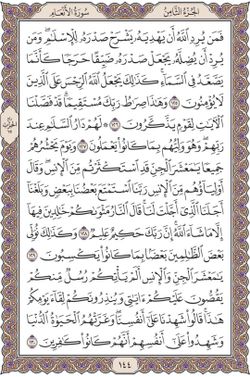 الجزء الثامن
سورة الأنعام
فَمَن يُرِدِ ٱللَّهُ أَن يَهْدِيَهُۥ يَشْرَحْ صَدْرَهُۥ لِلْإِسْلَٰمِ وَمَن
يُرِدْ أَن يُضِلَّهُۥ يَجْعَلْ صَدْرَهُۥ ضَيِّقًا حَرَجًا كَأَنَّمَا
يَصَّعَّدُ فِي ٱلسَّمَآءِ كَذَٰلِكَ يَجْعَلُ ٱللَّهُ ٱلرِّجْسَ عَلَى ٱلَّذِينَ
لَا يُؤْمِنُونَ ١٢٥ وَهَٰذَا صِرَٰطُ رَبِّكَ مُسْتَقِيمًا قَدْ فَصَّلْنَا
ٱلْأٓيَٰتِ لِقَوْمٍ يَذَّكَّرُونَ ١٢٦ لَهُمْ دَارُ ٱلسَّلَٰمِ عِندَ
رَبِّهِمْ وَهُوَ وَلِيُّهُم بِمَا كَانُوا۟ يَعْمَلُونَ ١٢٧ وَيَوْمَ يَحْشُرُهُمْ
جَمِيعًا يَٰمَعْشَرَ ٱلْجِنِّ قَدِ ٱسْتَكْثَرْتُم مِّنَ ٱلْإِنسِ وَقَالَ
أَوْلِيَآؤُهُم مِّنَ ٱلْإِنسِ رَبَّنَا ٱسْتَمْتَعَ بَعْضُنَا بِبَعْضٍ وَبَلَغْنَآ
أَجَلَنَا ٱلَّذِيٓ أَجَّلْتَ لَنَا قَالَ ٱلنَّارُ مَثْوَىٰكُمْ خَٰلِدِينَ فِيهَآ
إِلَّا مَا شَآءَ ٱللَّهُ إِنَّ رَبَّكَ حَكِيمٌ عَلِيمٌ ١٢٨ وَكَذَٰلِكَ نُوَلِّي
بَعْضَ ٱلظَّٰلِمِينَ بَعْضًۢا بِمَا كَانُوا۟ يَكْسِبُونَ ١٢٩
يَٰمَعْشَرَ ٱلْجِنِّ وَٱلْإِنسِ أَلَمْ يَأْتِكُمْ رُسُلٌ مِّنكُمْ
يَقُصُّونَ عَلَيْكُمْ ءَايَٰتِي وَيُنذِرُونَكُمْ لِقَآءَ يَوْمِكُمْ
هَٰذَا قَالُوا۟ شَهِدْنَا عَلَىٰٓ أَنفُسِنَا وَغَرَّتْهُمُ ٱلْحَيَوٰةُ ٱلدُّنْيَا
وَشَهِدُوا۟ عَلَىٰٓ أَنفُسِهِمْ أَنَّهُمْ كَانُوا۟ كَٰفِرِينَ ١٣٠
١٤٤